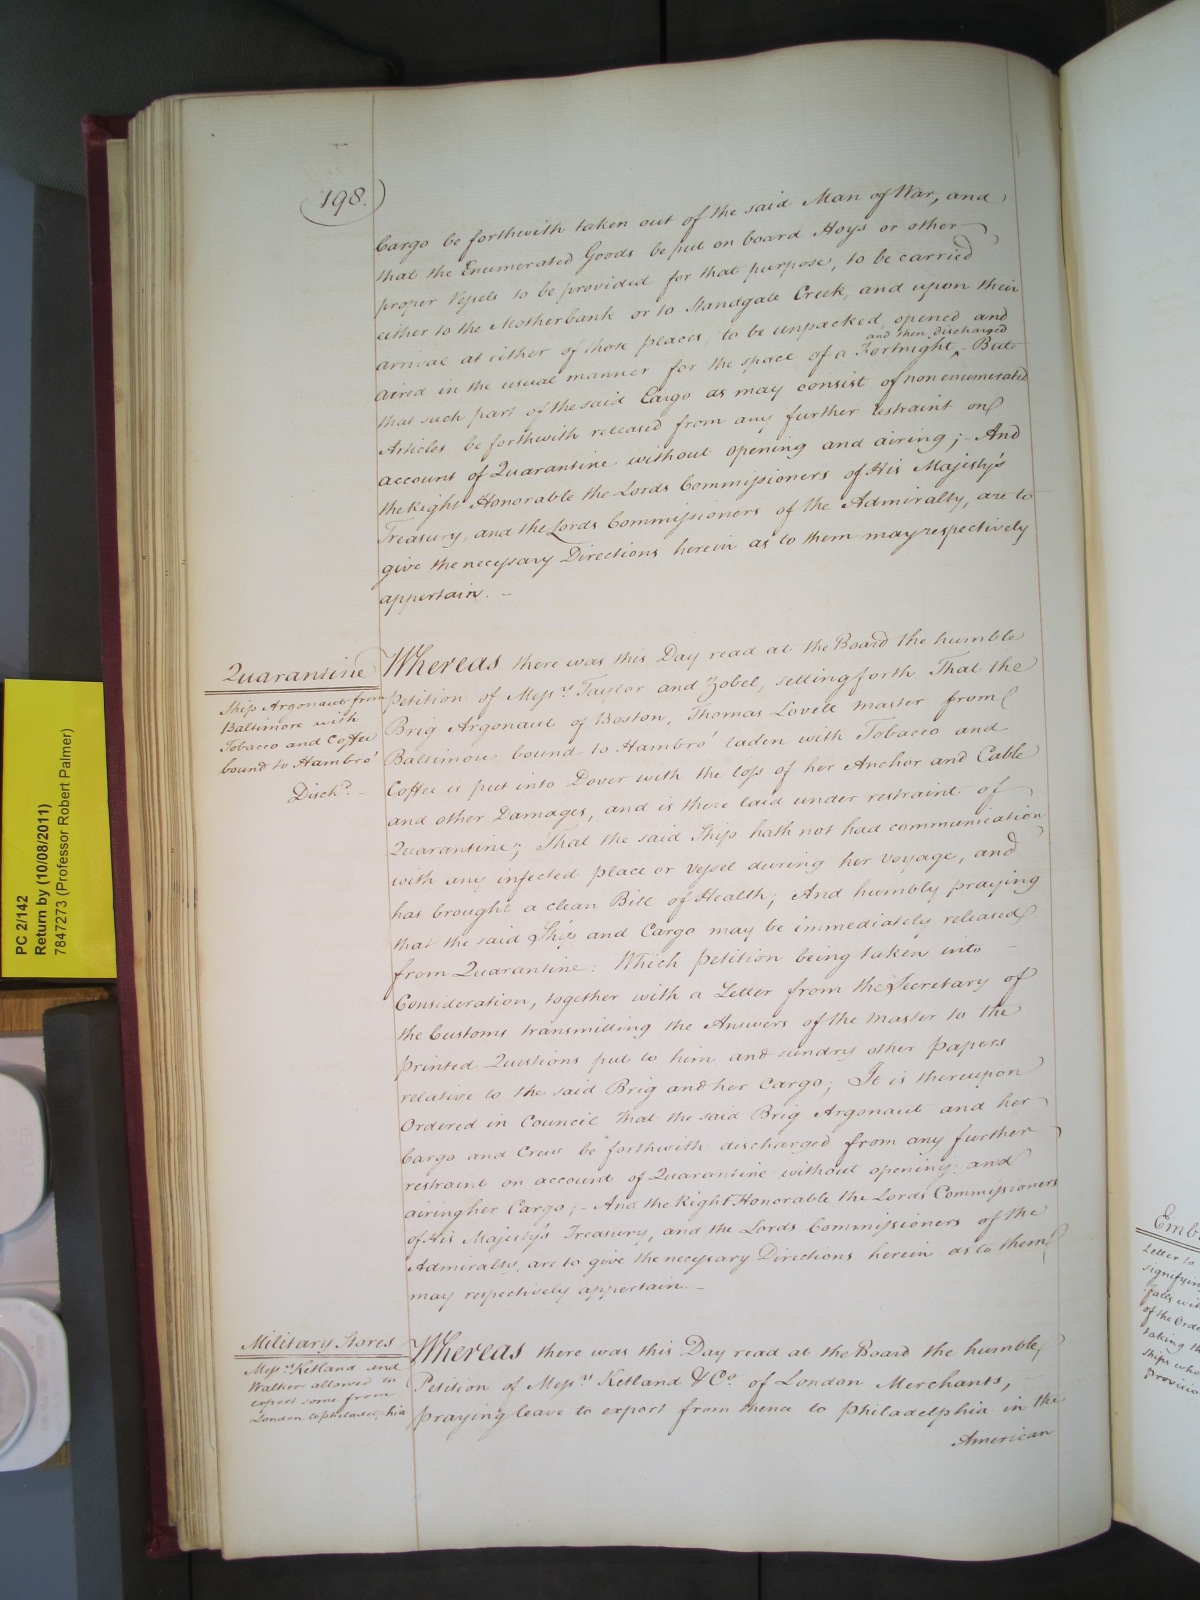 198.
Cargo be forthwith taken out of the said Man of War, and
that the Enumerated Goods be put on board Hoys or other
proper Vessels to be provided for that purpose, to be carried
either to the Motherbank or to Standgate Creek, and upon their
arrival at either of those places, to be unpacked, opened and
and then discharged
aired in the usual manner for the space of a Fortnight ^ - But
that such part of the said Cargo as may consist of non enumerated
Articles be forthwith released from any further restraint on
account of Quarantine without opening and airing; - And
the Right Honorable the Lords Commissioners of His Majesty's
Treasury, and the Lords Commissioners of the Admiralty, are to
give the necessary Directions herein as to them may respectively
appertain. -
Quarantine
Ship Argonaut from
Baltimore with
Tobacco and Coffee
bound to Hambro'
Disch'd. -
Whereas there was this Day read at the Board the humble
Petition of Mess.rs Taylor and Zobel, setting forth That the
Brig Argonaut of Boston, Thomas Lovell Master from
Baltimore, bound to Hambro' laden with Tobacco and
Coffee is put into Dover with the loss of her Anchor and Cable
and other Damages, and is there laid under restraint of
Quarantine; That the said Ship hath not had communication
with any infected place or Vessel during her voyage, and
has brought a clean Bill of Health; And humbly praying
that the said Ship and Cargo may be immediately released
from Quarantine: Which Petition being taken into -
Consideration, together with a Letter from the Secretary of
the Customs transmitting the Answers of the Master to the
printed Questions put to him and sundry other papers
relative to the said Brig and her Cargo; It is thereupon
Ordered in Council that the said Brig Argonaut and her
Cargo and Crew be forthwith discharged from any further
restraint on account of Quarantine without opening and
airing her Cargo; - And the Right Honorable the Lords Commissioners
of His Majesty's Treasury, and the Lords Commissioners of the
Admiralty, are to give the necessary Directions herein as to them
may respectively appertain. -
Military Stores
Mess.rs Ketland and
Walker allowed to
export some from
London to Philadelphia
Whereas there was this Day read at the Board the humble
Petition of Mess.rs Ketland & Co. of London Merchants, -
praying leave to export from thence to Philadelphia in the
American
PC 2/142
Return by (10/08/2011)
7847273 (Professor Robert Palmer)
Emb
Letter to
signifying
of the Orde
taking th
Ships who
Provisio